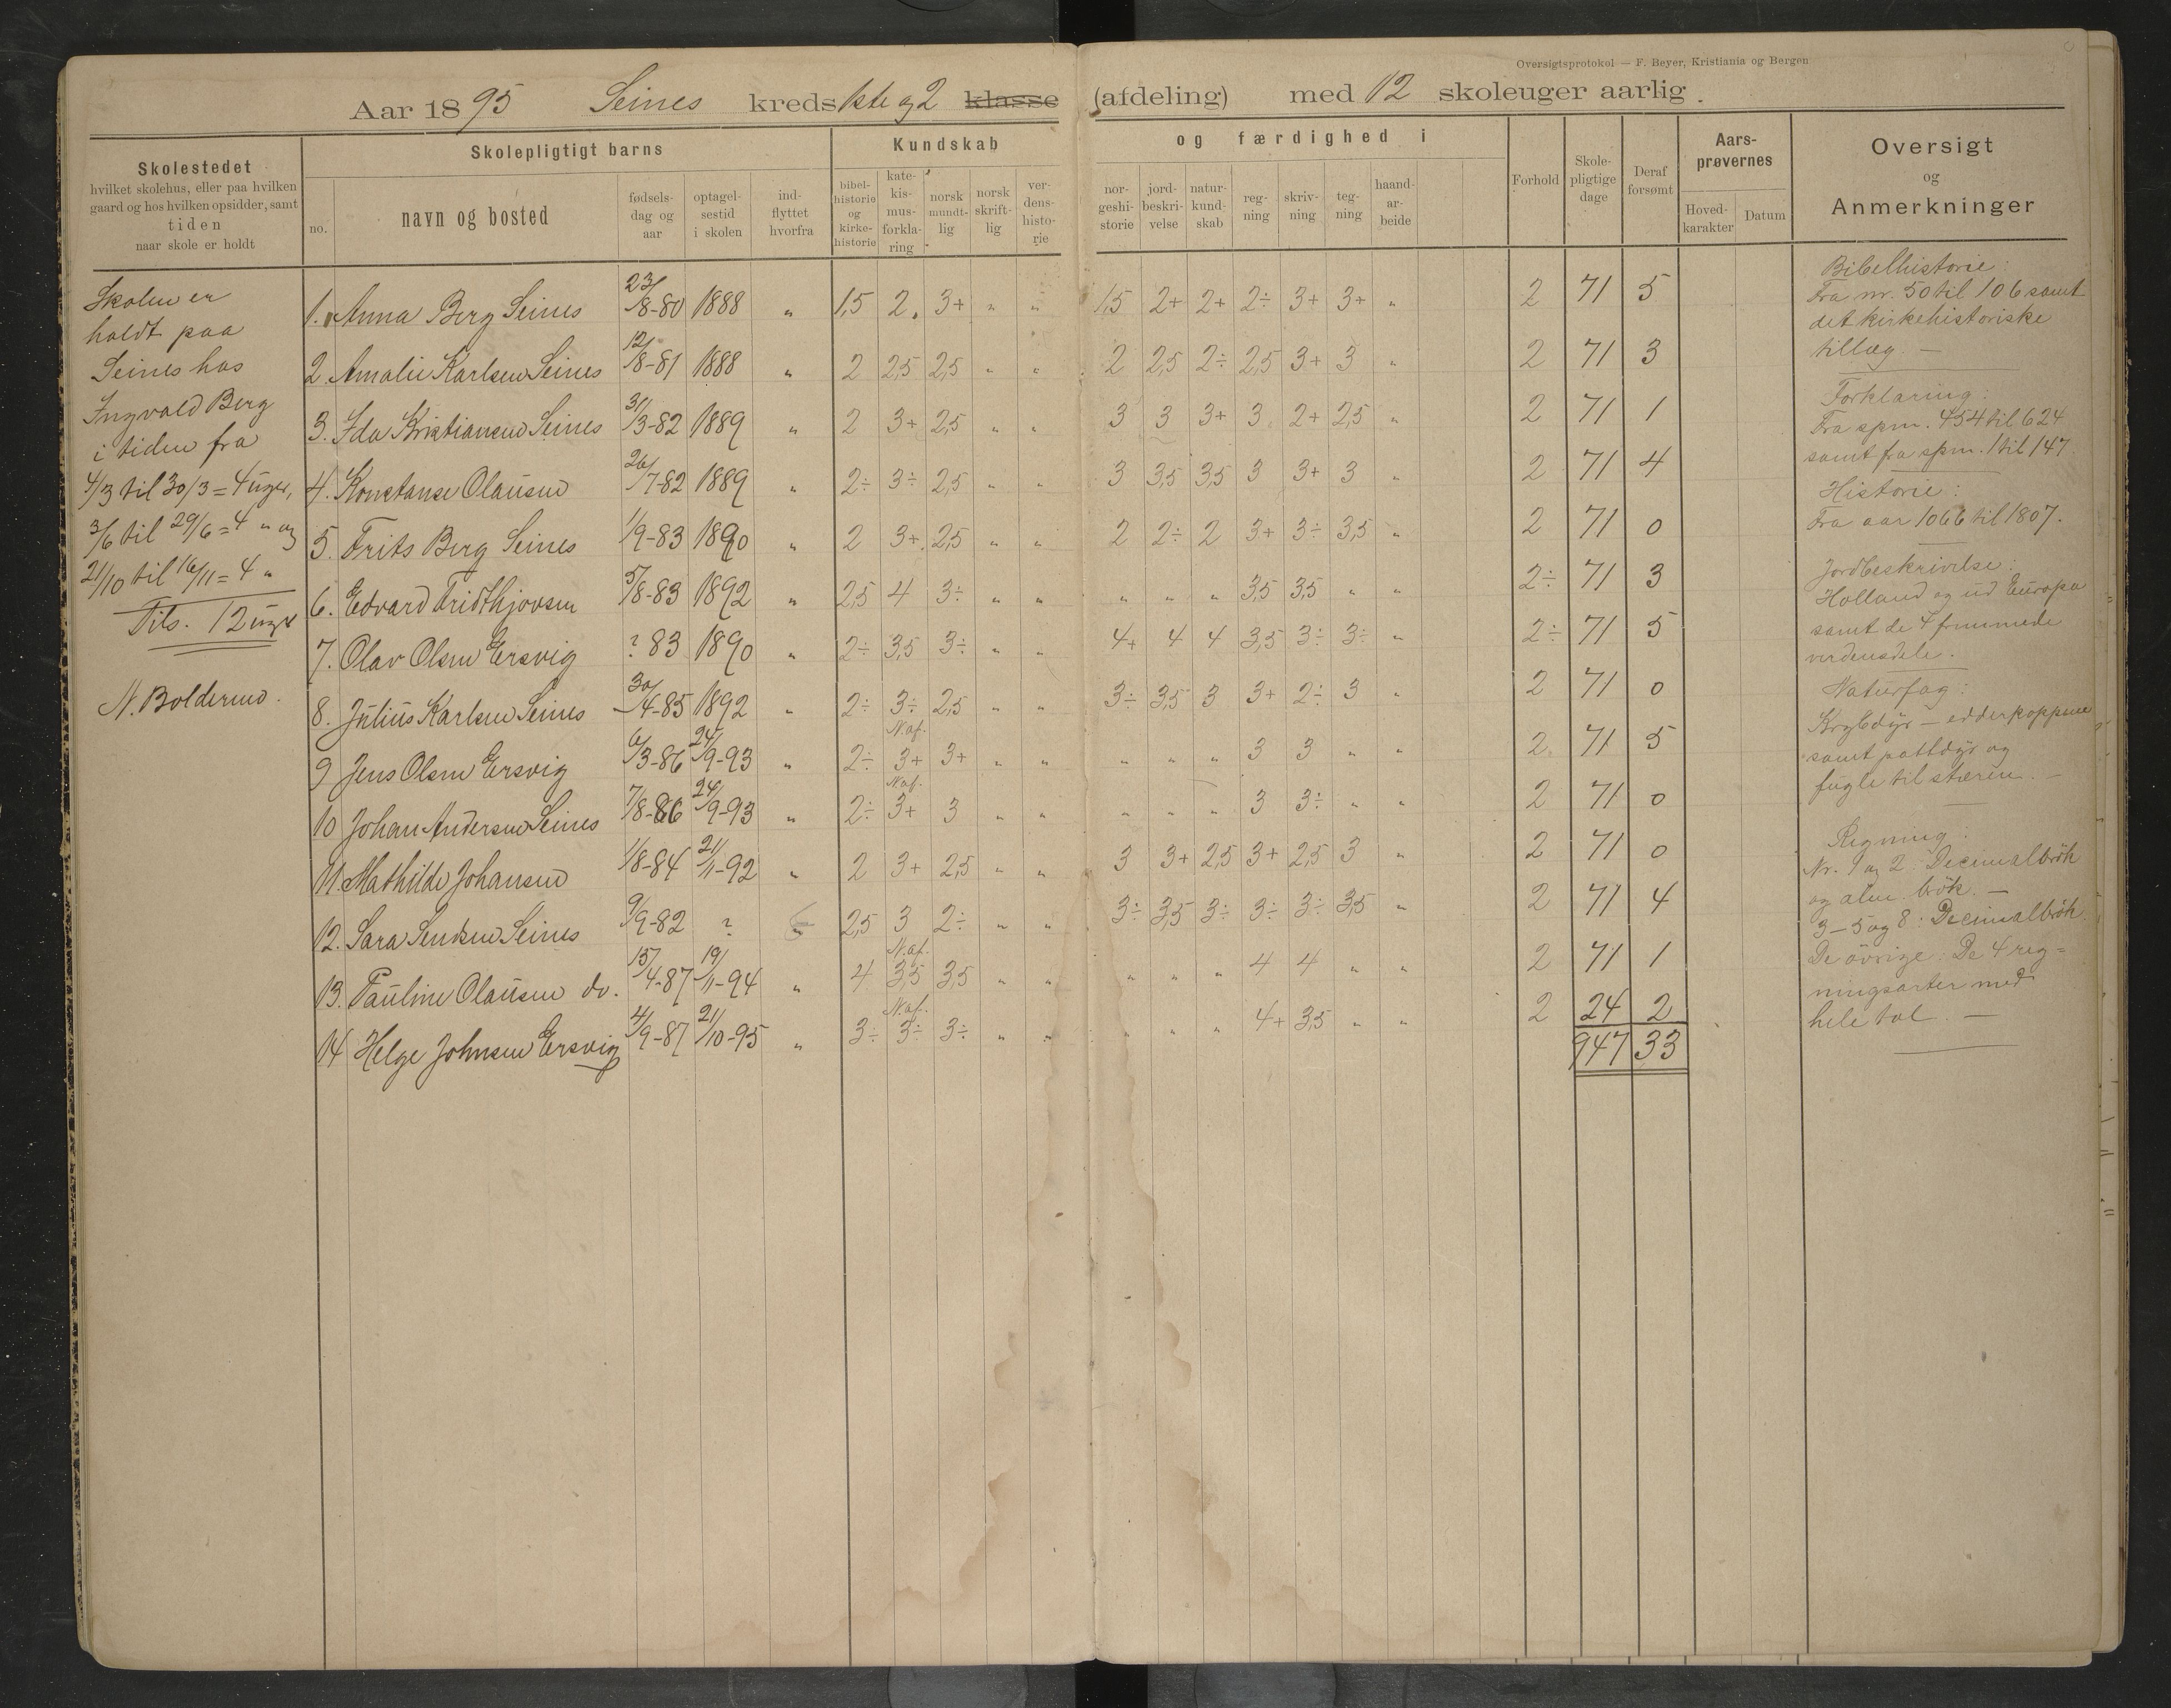 Oversigtsprotokol — F. Beyer, Kristiania og Bergen
Aar 1895 Seines kreds 1ste og 2 klasse (afdeling) med 12 skoleuger aarlig.
Skolestedet
hvilket skolehus, eller paa hvilken
gaard og hos hvilken opsidder, samt
tiden
naar skole er holdt
Skolepligtigt barns
no.
navn og bosted
fødsels-
dag og
aar
optagel-
sestid
i skolen
ind-
flyttet
hvorfra
Kundskab
bibel-
historie
og
kirke-
historie
kate-
kis-
mus-
forkla-
ring
norsk
mundt-
lig
norsk
skrift-
lig
ver-
dens-
histo-
rie
og færdighed i
nor-
geshi-
storie
jord-
beskri-
velse
natur-
kund-
skab
reg-
ning
skriv-
ning
teg-
ning
haand-
ar-
beide
Forhold
Skole-
pligtige
dage
Deraf
forsømt
Aars-
prøvernes
Hoved-
karakter
Datum
Oversigt
og
Anmerkninger
Skolen er
holdt paa
Seines hos
Ingvald Berg
i tiden fra
4/3 til 30/3 = 4 uger,
3/6 til 29/6 = 4 " og
21/10 til 16/11 = 4 "
Tils. 12 uger
N. Boldermo.
1. Anna Berg Seines 23/8-80 1888 " 1,5 2. 3+ " " 1,5 2+ 2+ 2÷ 3+ 3+ " 2 71 5
2. Amalie Karlsen Seines 12/8-81 1888 " 2 2,5 2,5 " " 2 2,5 2÷ 2,5 3+ 3 " 2 71 3
3. Ida Kristiansen Seines 31/3-82 1889 " 2 3+ 2,5 " " 3 3 3+ 3 2+ 2,5 " 2 71 1
4. Konstanse Olausen 26/7-82 1889 " 2÷ 3÷ 2,5 " " 3 3,5 3,5 3 3+ 3 " 2 71 4
5. Frits Berg Seines 1/9-83 1890 " 2 3+ 2,5 " " 2 2÷ 2 3+ 3÷ 3,5 " 2 71 0
6. Edvard Fridthjovsen 5/8-83 1892 " 2,5 4 3÷ " " " " " 3,5 3,5 " " 2÷ 71 3
7. Olav Olsen Ersvig ? 83 1890 " 2÷ 3,5 3÷ " " 4+ 4 4 3,5 3÷ 3÷ " 2÷ 71 5
8. Julius Karlsen Seines 30/4-85 1892 " 2÷ 3÷ 2,5 " " 3÷ 3,5 3 3+ 2÷ 3 " 2 71 0
9 Jens Olsen Ersvig 6/3-86 24/9-93 " 2÷ N.af. 3+ 3+ " " " " " 3 3 " " 2 71 5
10 Johan Andersen Seines 7/8-86 24/9-93 " 2÷ N.af. 3+ 3 " " " " " 3 3÷ " " 2 71 0
11. Mathilde Johansen 1/8-84 21/11-92 " 2 3+ 2,5 " " 3 3+ 2,5 3+ 2,5 3 " 2 71 0
12. Sara Sendsen Seines 9/9-82 ? " 2,5 3 2÷ " " 3÷ 3,5 3÷ 3÷ 3÷ 3,5 " 2 71 4
13. Pauline Olausen do. 15/4-87 19/11-94 " 4 N.af. 3,5 3,5 " " " " " 4 4 " " 2 71 1
14 Helge Johnsen Ersvig 4/9-87 21/10-95 " 3÷ N.af. 3÷ 3÷ " " " " " 4+ 3,5 " " 2 24 2
947 33
Bibelhistorie:
Fra nr. 50 til 106 samt
det kirkehistoriske
tillæg. —
Forklaring:
Fra spm. 454 til 624
samt fra spm. 1 til 147
Historie:
Fra aar 1066 til 1807.
Jordbeskrivelse:
Holland og ud Europa
samt de 4 fremmede
verdensdele.
Naturfag:
Krybdyr — edderkoppene
samt pattdyr og
fugle til stæren. —
Regning:
Nr. 1 og 2: Decimalbrök
og alm. brök. —
3 — 5 og 8: Decimalbrök
De övrige: De 4 reg-
ningsarter med
hele tal. —